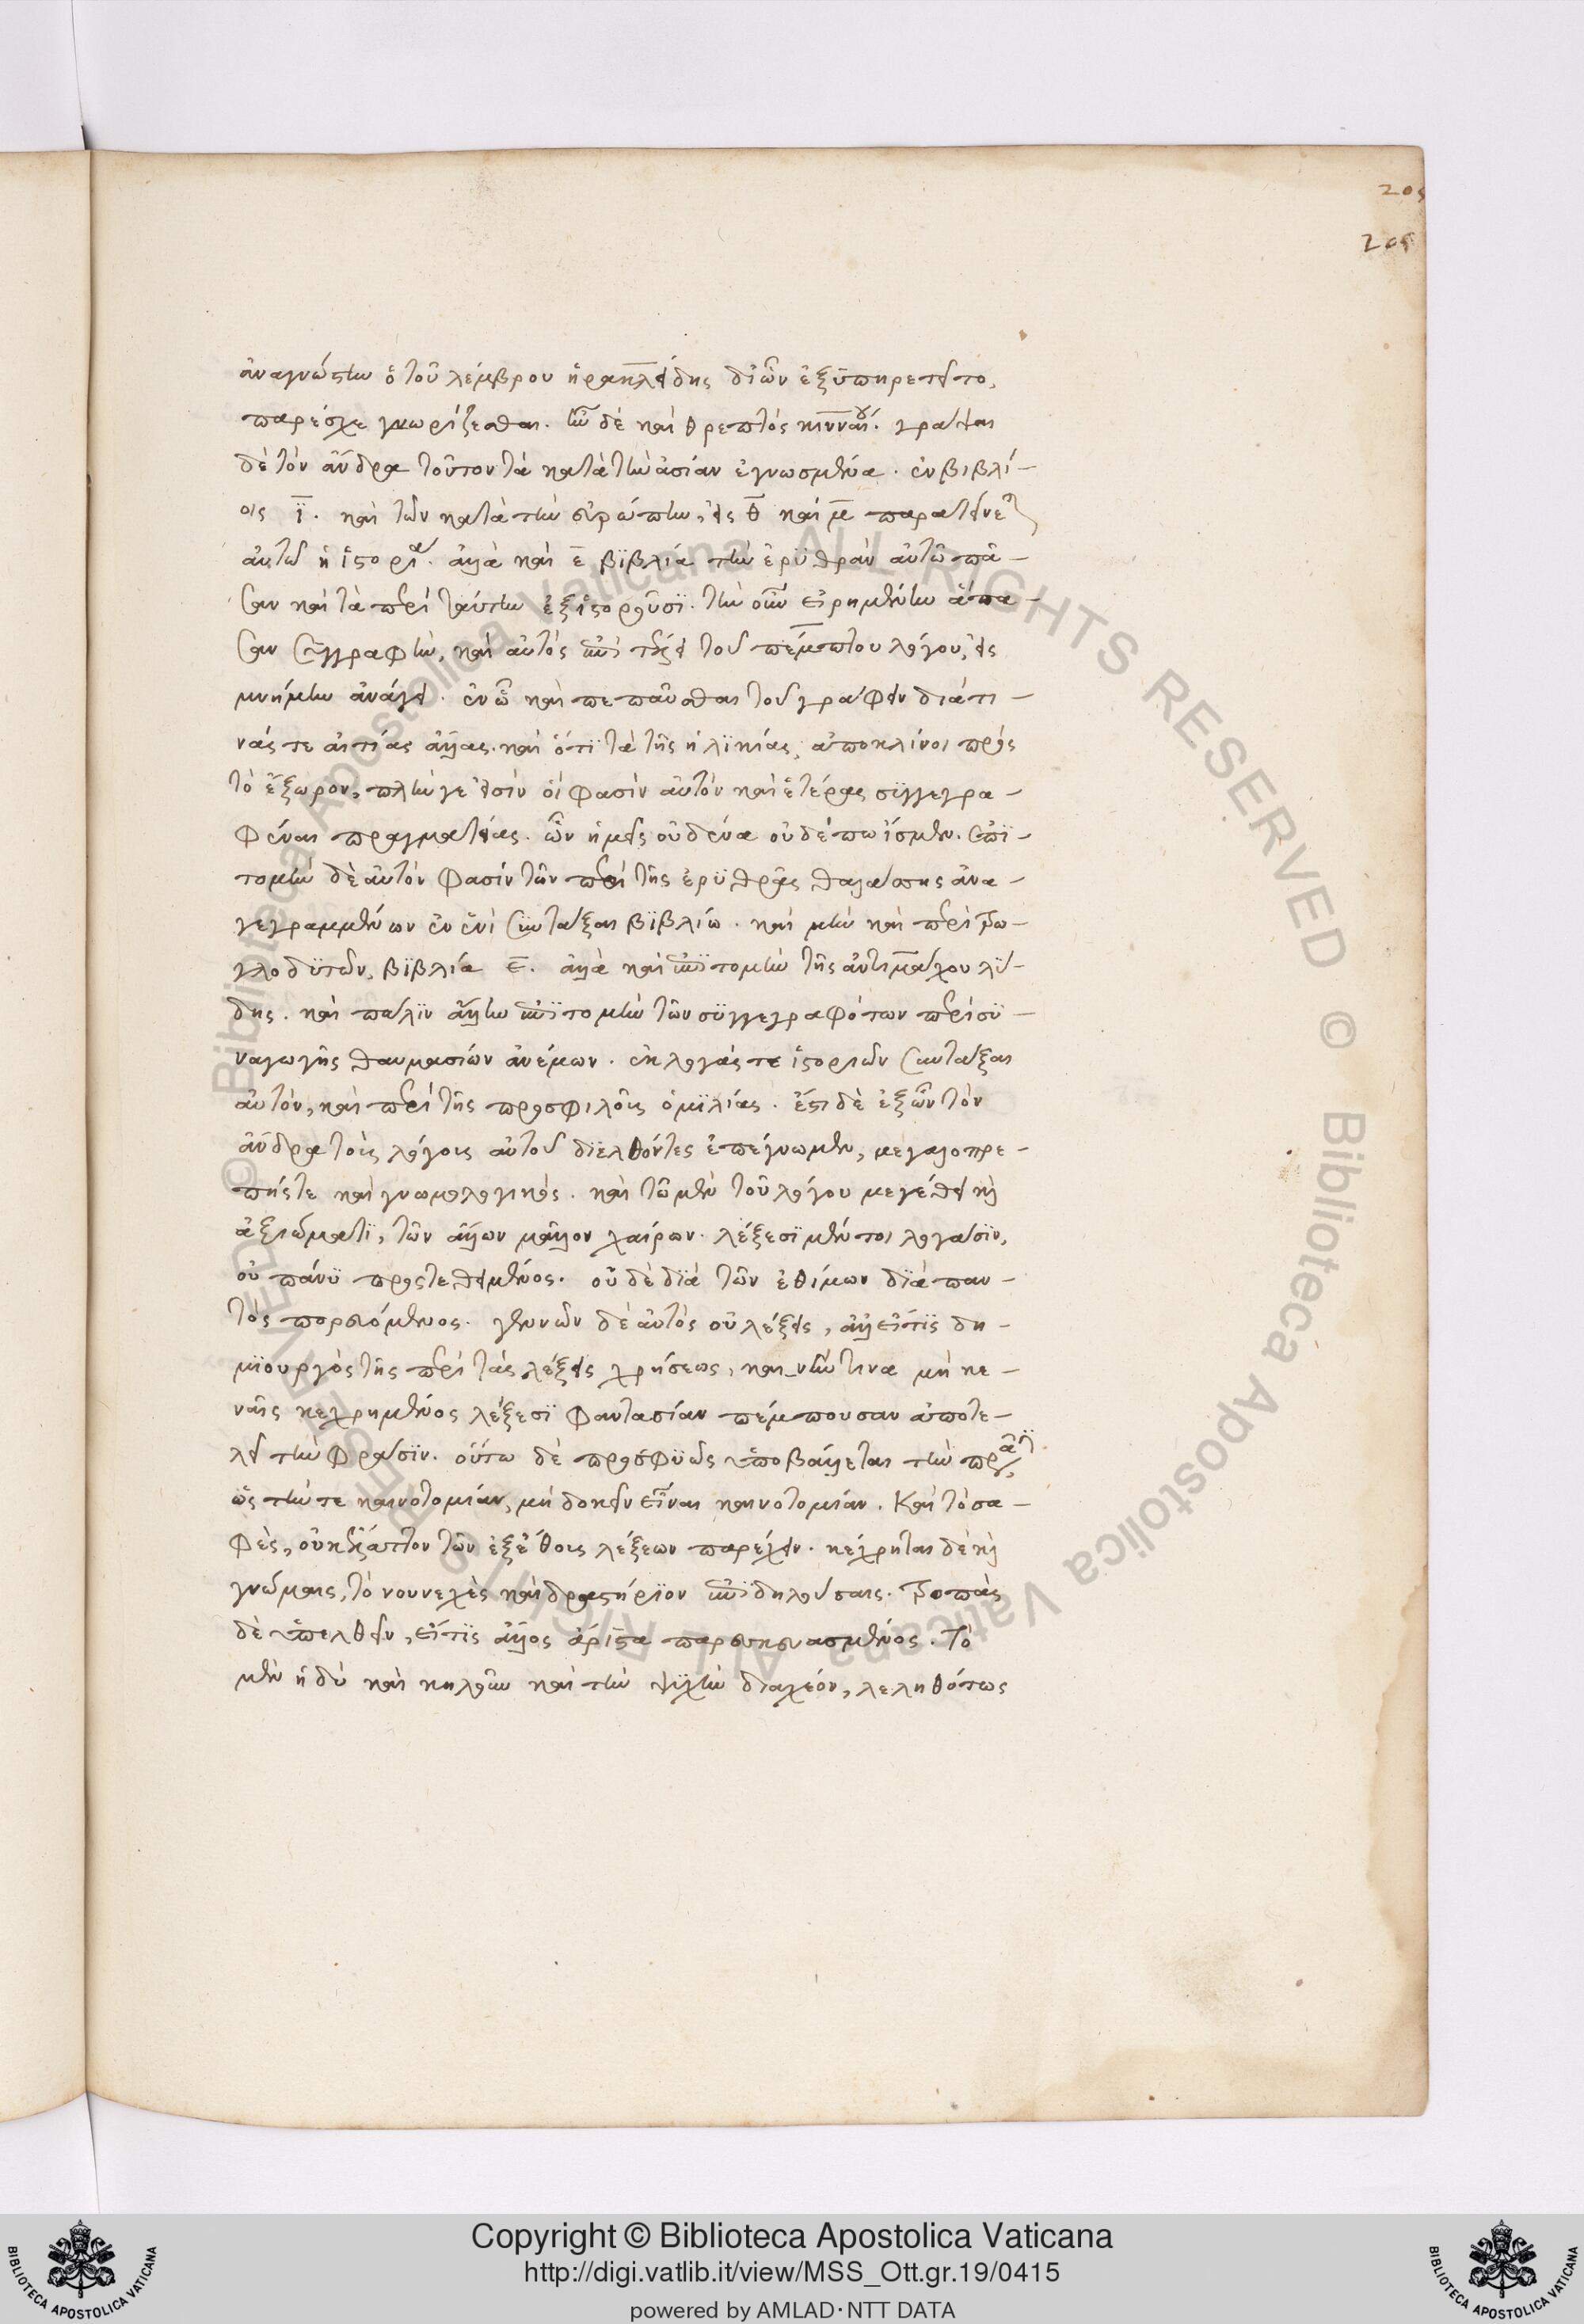 205
205
ἀναγνώστην ὁ τοῦ λέμβρου ἡρακλείδης δι ὧν ἐξυπηρετεῖτο,
παρέσχε γνωρίζεσθαι. ἦν δὲ καὶ θρεπτός κινναίου. γράψαι
δὲ τὸν ἄνδρα τοῦτον τὰ κατὰ τὴν ἀσίαν ἔγνωσμένα. ἐν βιβλί–
οις ϊ. καὶ τῶν κατὰ τὴν εὐρώπην, εἰς θ καὶ μ παρατείνει
αὐτῶ ἡ ἱστορία. ἀλλὰ καὶ ε βϊβλία τὴν ἐρϋθρὰν αὐτῶ πᾶ–
σαν καὶ τὰ περὶ ταύτην ἐξϊστοροῦσϊ. τὴν οὖν εἰρημένην ἅπα–
σαν συγγραφὴν, καὶ αὐτὸς ἐπὶ τέλει τοῦ πέμπτου λόγου, εἰς
μνήμην ἀνάγει. ἐν ὧ καὶ πεπαῦσθαι τοῦ γράφειν διά τι–
νάς τε αἰτίας ἄλλας. καὶ ὅτϊ τὰ τῆς ἡλϊκίας, ἀποκλίνοι πρὸς
τὸ ἔξωρον, πλήν γε εἰσὶν οἵ φασὶν αὐτὸν καὶ ἑτέρας σϋγγεγρα–
φέναι πραγματείας. ὧν ἡμεῖς οὐδένα οὐδέπω ἴσμεν. ἐπϊ–
τομὴν δὲ αὐτόν φασὶν τῶν περὶ τῆς ἐρϋθρᾶς θαλάσσης ἀνα–
γεγραμμένων ἐν ἑνὶ συντάξαι βϊβλίω. καὶ μὴν καὶ περὶ τρω–
γλοδϋτῶν, βϊβλία ε. ἀλλὰ καὶ ἐπϊτομὴν τῆς ἀντιμάχου λϋ–
δης. καὶ πάλϊν ἄλλην ἐπϊτομὴν τῶν σϋγγεγραφότων περὶ σϋ–
ναγωγῆς θαυμασίων ἀνέμων. ἐκλογάς τε ἱστοριῶν συντάξαι
αὐτὸν, καὶ περὶ τῆς προσφιλοῦς ὁμϊλίας. ἔστι δὲ ἐξ ὧν τὸν
ἄνδρα τοῖς λόγοις αὐτοῦ διελθόντες ἐπέγνωμεν, μεγαλοπρε–
πής τε καὶ γνωμολογικός. καὶ τῶ μὲν τοῦ λόγου μεγέθει καὶ
ἀξιώματϊ, τῶν ἄλλων μᾶλλον χαίρων. λέξεσϊ μέντοι λογάσϊν,
οὐ πάνϋ προστεθειμένος. οὐδὲ δϊὰ τῶν ἐθίμων δϊὰ παν–
τὸς πορευόμενος. γεννῶν δὲ αὐτὸς οὐ λέξεις, ἀλλ εἴ τϊς δη–
μϊουργὸς τῆς περὶ τὰς λέξεις χρήσεως, καινήν τινα μὴ κε–
ναῖς κεχρημένος λέξεσϊ φαντασίαν πέμπουσαν ἀποτε–
λεῖ τὴν φράσϊν. οὕτω δὲ προσφϋῶς ὑποβάλλεται τὴν πρᾶξϊν,
ὡς τήν τε καινοτομίαν, μὴ δοκεῖν εἶναι καινοτομίαν. Καὶ τὸ σα–
φὲς, οὐκ ἔλαττον τῶν ἐξ ἔθους λέξεων παρέχειν. κέχρηται δὲ καὶ
γνώμαις, τὸ νουνεχὲς καὶ δραστήρϊον ἐπϊδηλούσαις. τροπὰς
δὲ ὑπελθεῖν, εἴ τϊς ἄλλος ἄριστα παρεσκευασμένος. Τὸ
μὲν ἡδὺ καὶ κηλοῦν καὶ τὴν ψϋχὴν διαχέον, λεληθότως
© Biblioteca Apostolica Vaticana ALL RIGHTS RESERVED © Biblioteca Apostolica Vaticana ALL RIGHTS RESERVED
Copyright © Biblioteca Apostolica Vaticana
http://digi.vatlib.it/view/MSS_Ott.gr.19/0415
powered by AMLAD·NTT DATA
BIBLIOTECA APOSTOLICA VATICANA
BIBLIOTECA APOSTOLICA VATICANA